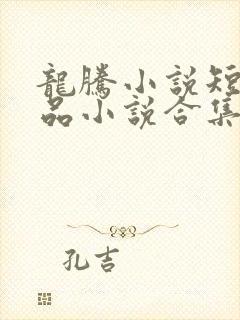 龍騰小說短
品小說合集
孔吉